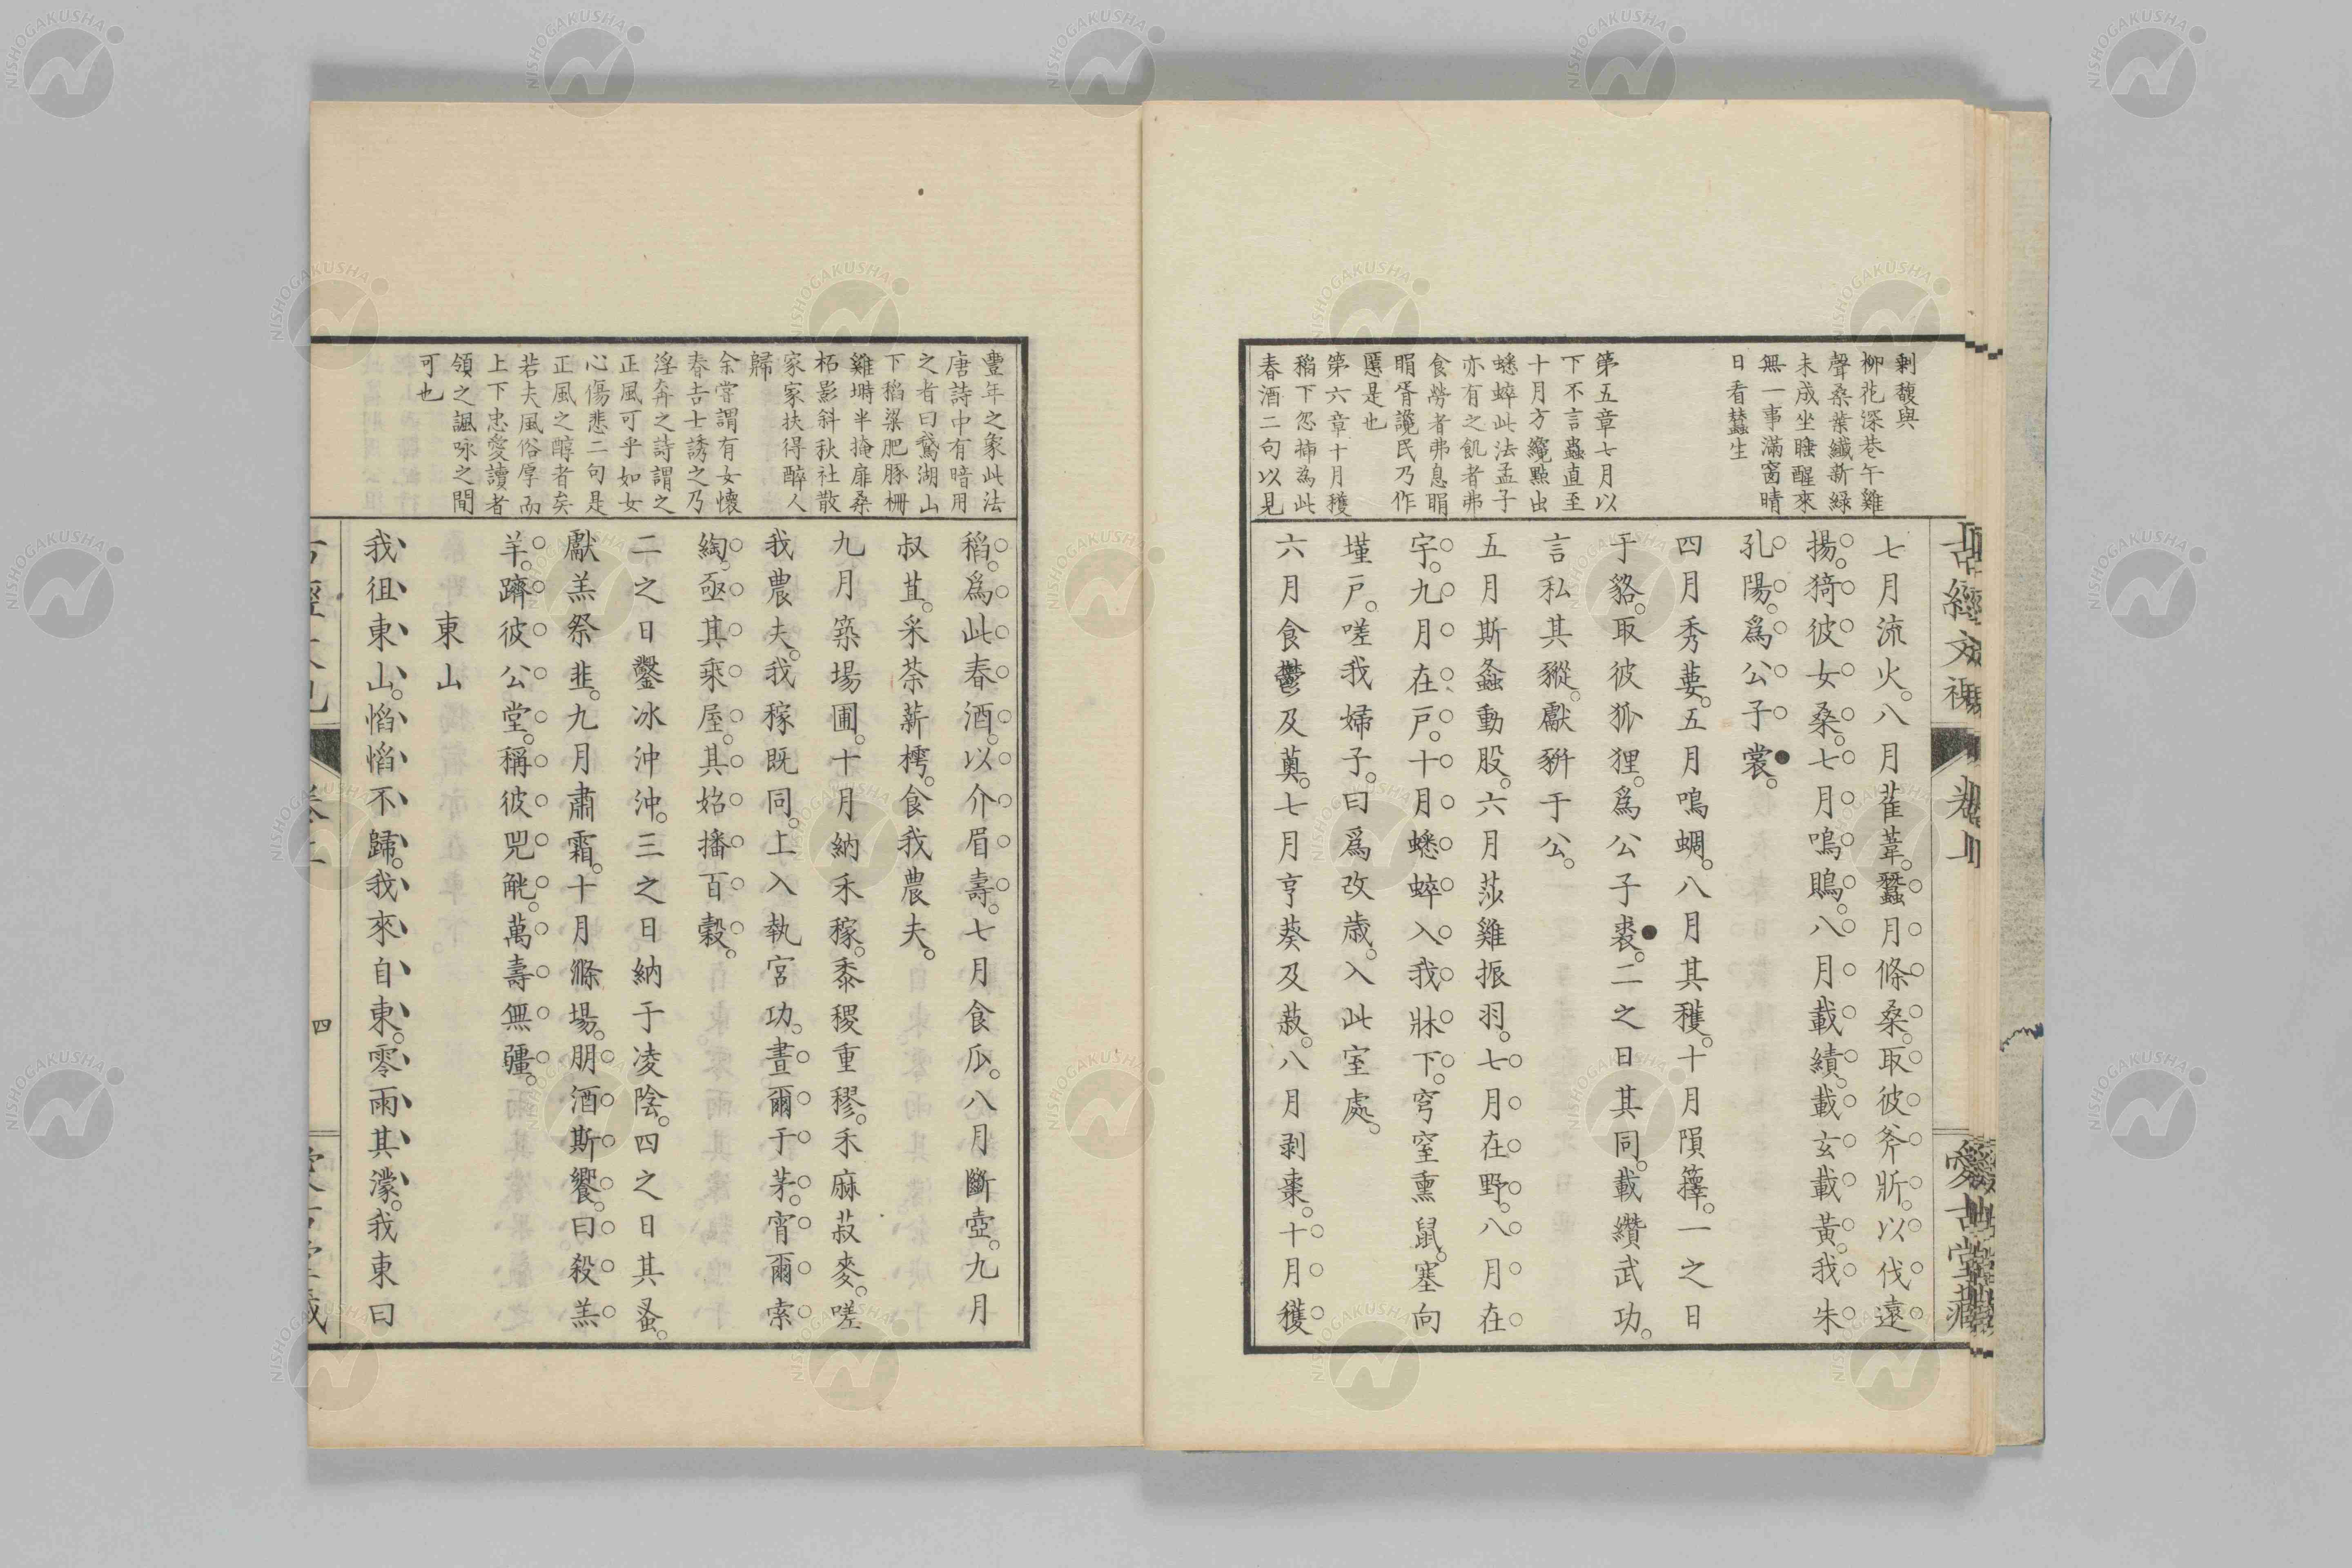 剩馥與
柳花深巷午雞
聲桑葉纖新綠
未成坐睡醒來
無一事滿窗晴
日看蠶生
第五章七月以
下不言蟲直至
十月方纔點出
蟋蟀此法孟子
亦有之飢者弗
食勞者弗息睊
睊胥讒民乃作
慝是也
第六章十月穫
稻下忽揷為此
春酒二句以見
七月流火。八月萑葦。蠶月條桑。取彼斧斨。以伐遠
揚。猗彼女桑。七月鳴鵙。八月載績。載玄載黃。我朱
孔陽。爲公子裳。
四月秀葽。五月鳴蜩。八月其穫。十月隕蘀。一之日
于貉。取彼狐狸。爲公子裘。二之日其同。載纘武功。
言私其豵。獻豜于公。
五月斯螽動股。六月莎雞振羽。七月在野。八月在
宇。九月在戸。十月蟋蟀入我牀下。穹窒熏鼠。塞向
墐戸。嗟我婦子。曰爲改歲。入此室處。
六月食鬱及薁。七月亨葵及菽。八月剥棗。十月獲
豐年之象此法
唐詩中有暗用
之者曰鵞湖山
下稻粱肥豚柵
雞塒半掩扉桑
柘影斜秋社散
家家扶得醉人
歸
余嘗謂有女懷
春吉士誘之乃
淫奔之詩謂之
正風可乎如女
心傷悲二句是
正風之醇者矣
若夫風俗厚而
上下忠愛讀者
領之諷咏之間
可也
稻。爲此春酒。以介眉壽。七月食瓜。八月斷壺。九月
叔苴。采荼薪樗。食我農夫。
九月築場圃。十月納禾稼。黍稷重穋。禾麻菽麥。嗟
我農夫。我稼既同。上入執宮功。晝爾于茅。宵爾索
綯。亟其乘屋。其始播百穀。
二之日鑿冰沖沖。三之日納于凌陰。四之日其蚤。
獻羔祭韭。九月肅霜。十月滌場。朋酒斯饗。曰殺羔
羊。躋彼公堂。稱彼兕觥。萬壽無疆。
東山
我徂東山。慆慆不歸。我來自東。零雨其濛。我東曰
四